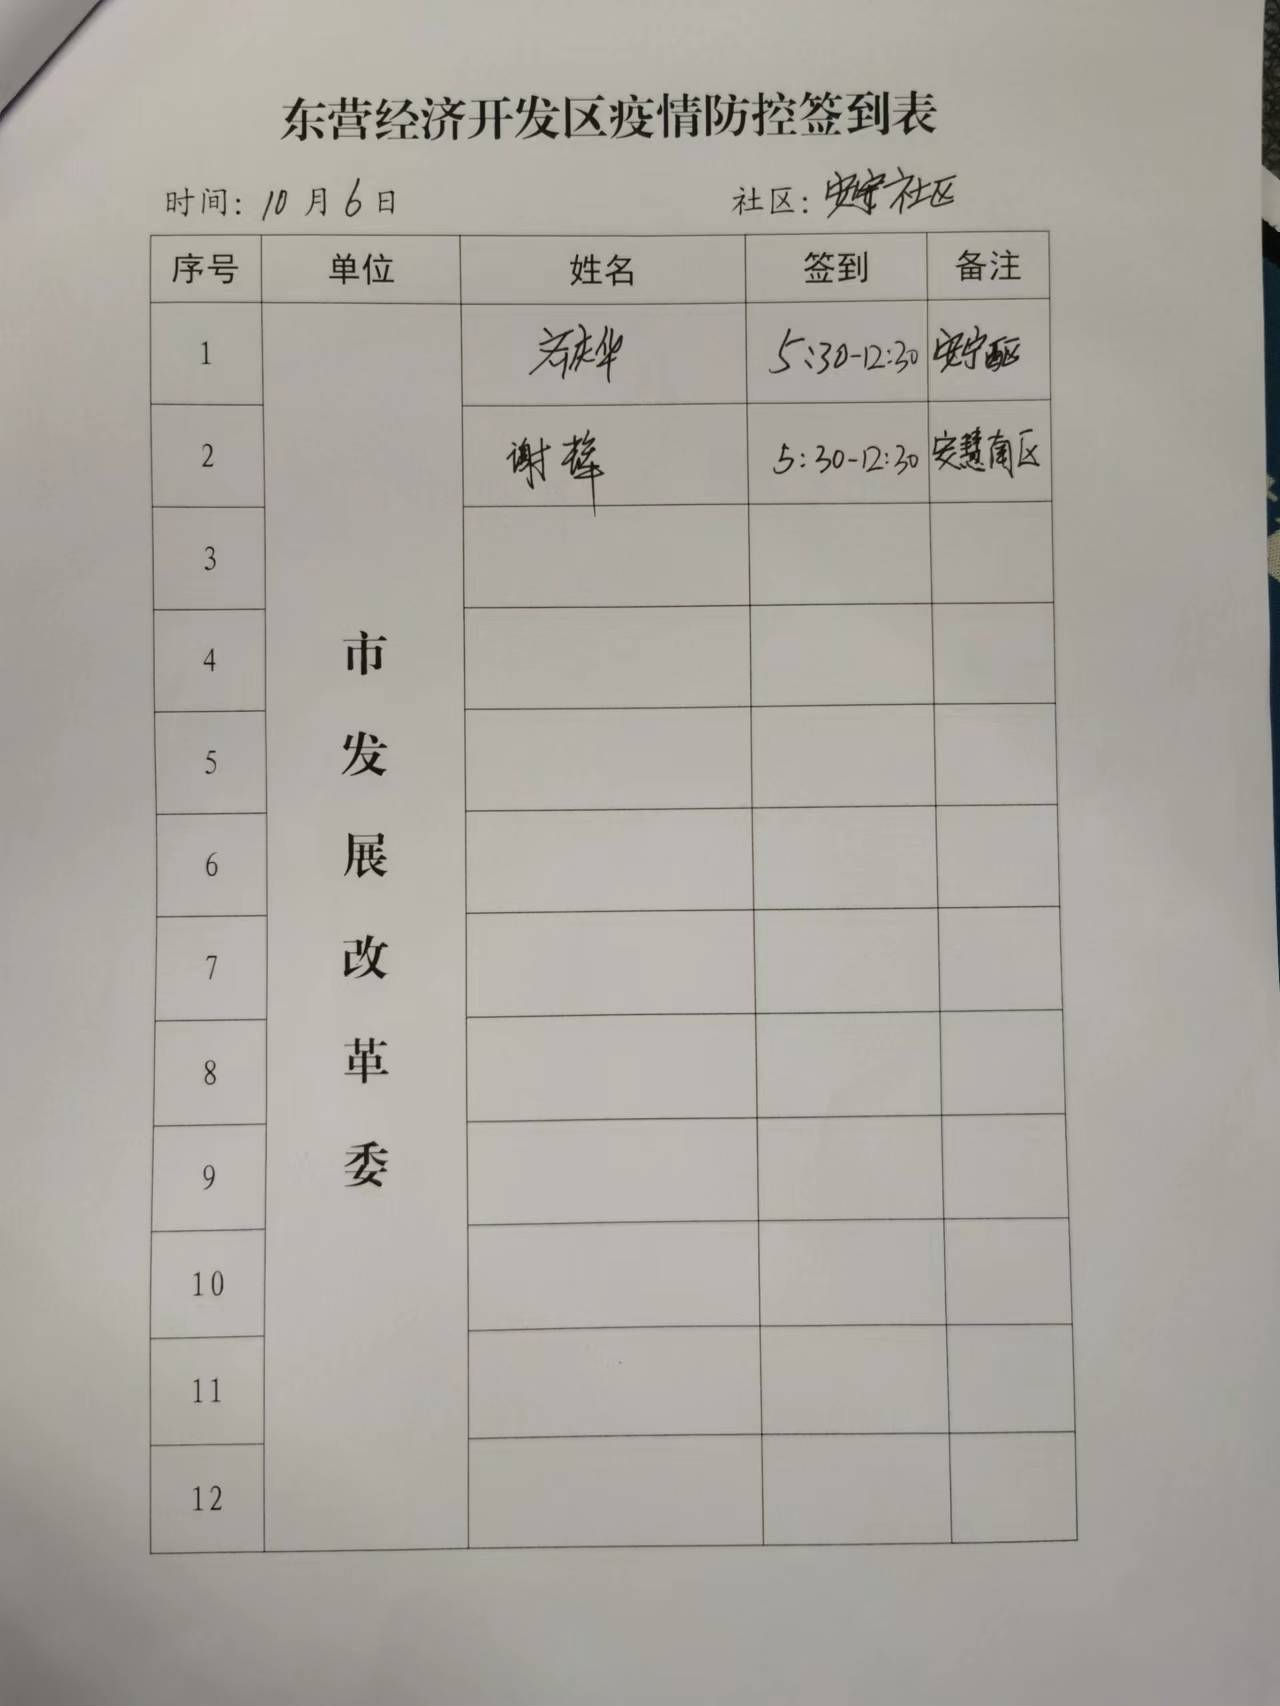 东营经济开发区疫情防控签到表
时间：10月6日 社区：安宁社区
序号 单位 姓名 签到 备注
1 庆华 5:30-12:30 安宁西区
2 谢 5:30-12:30 安慧南区
3
4
5
6
7
8
9
10
11
12
市发展改革委